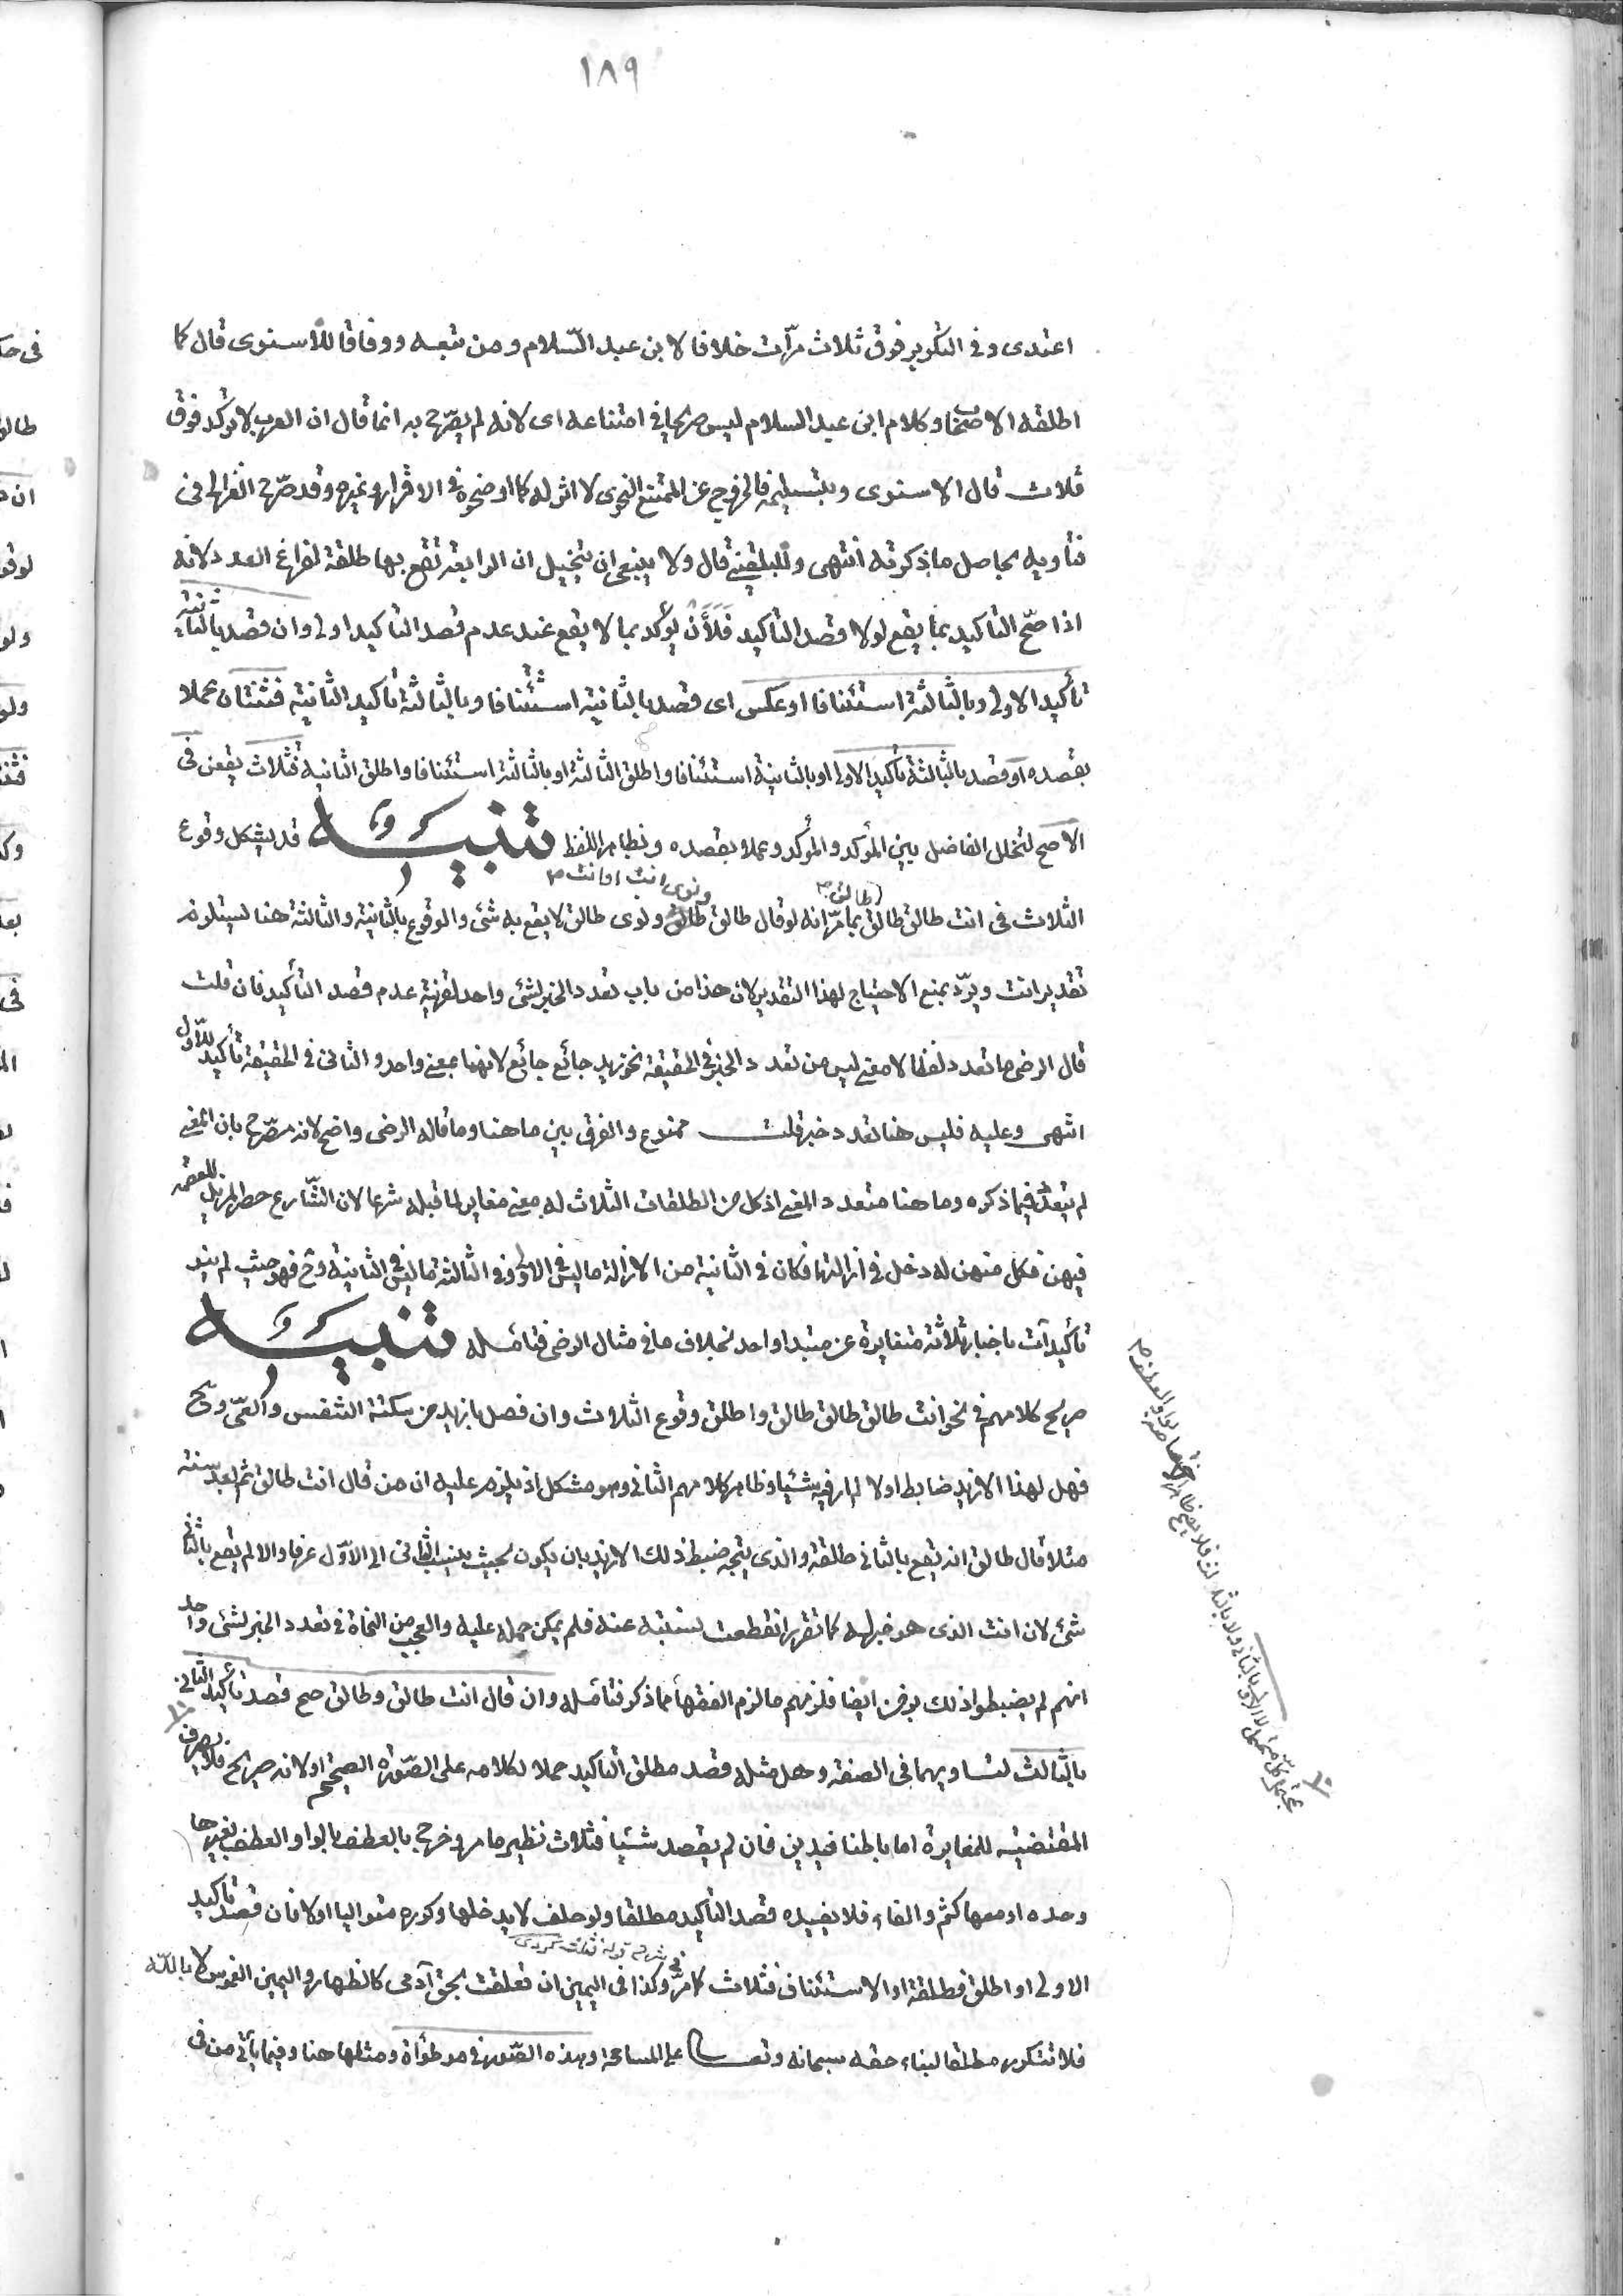 ١٨٩
اعتدى وفى التكرير فوق ثلاث مرّات خلافا لابن عبد السّلام ومن تبعه ووفاقا للاسنوى قال كما
اطلقه الاصحاب وكلام ابن عبد السلام ليس صريحا فى امتناعه اى لانه لم يصرّح به انما قال ان العرب لا تؤكد فوق
ثلاث قال الاسنوى وبتسليمه فالخروج عن الممتنع النحوى لا اثر له كما اوضحوه فى الاقرار وغيره وقد صرّح الغزالى فى
فتاويه بحاصل ما ذكرته انتهى وللبلقينى قال ولا ينبغى ان يتخيل ان الرابعة تقع بها طلقة لفراغ العدد لانه
اذا صحّ التأكيد بما يقع لولا قصد التأكيد فَلَأَنْ يؤكد بما لا يقع عند عدم قصد التأكيد اولى وان قصد بالثانية
تأكيد الاولى وبالثالثة استئنافا او عكس اى قصد بالثانية استئنافا وبالثالثة تأكيد الثانية فثنتان عملا
بقصده او قصد بالثالثة تأكيد الاولى او بالثانية استئنافا واطلق الثالثة او بالثالثة استئنافا واطلق الثانية فثلاث يقعن فى
الاصح لتخلل الفاصل بين المؤكد والمؤكد وعملا بقصده وبظاهر اللفظ تنبيه قد يشكل وقوع
الثلاث فى انت طالق طالق طالق بما مرّ انه لو قال طالق ونوى انت او انت ونوى طالق لا يقع به شئ والوقوع بالثانية والثالثة هنا يستلزم
تقدير انت ويردّ بمنع الاحتياج لهذا التقدير لان هذا من باب تعدد الخبر لشئ واحد لقرينة عدم قصد التأكيد فان قلت
قال الرضى ما تعدد لفظا لا معنى ليس من تعدد الخبر فى الحقيقة نحو زيد جائع جائع لانهما بمعنى واحد والثانى فى الحقيقة تأكيد للاوّل
انتهى وعليه فليس هنا تعدد خبر قلت ممنوع والفرق بين ما هنا وما قاله الرضى واضح لانه مصرّح بان المعنى
لم يتعدد فيما ذكره وما هنا متعدد المعنى اذ كل من الطلقات الثلاث له معنى مغاير لما قبله شرعا لان الشّارع حصر المزيل للعصمة
فيهن فكل منهن له دخل فى ازالتها فكان فى الثانية من الازالة ما ليس فى الاولى وفى الثالثة ما ليس فى الثانية وح فهو حيث لم ينو
تأكيدآت باخبار ثلاثة متغايرة عن مبتدا واحد بخلاف ما فى مثال الرضى فتأمّله تنبيه
صريح كلامهم فى نحو انت طالق طالق طالق واطلق وقوع الثلاث وان فصل بازيد من سكتة التنفس والعىّ وح
فهل لهذا الازيد ضابط اولا لم ار فيه شئيا وظاهر كلامهم الثانى وهو مشكل اذ يلزم عليه ان من قال انت طالق ثم بعد سنة
مثلا قال طالق انه يقع بالثانى طلقة والذى يتجه ضبط ذلك الازيد بان يكون بحيث ينسب الثانى الى الاوّل عرفا والا لم يقع بالثانى
شئ لان انت الذى هو خبر له كما تقرر انقطعت نسبته عنه فلم يمكن حمله عليه والعجب من النحاة فى تعدد الخبر لشئ واحد
انهم لم يضبطوا ذلك بزمن ايضا فلزمهم ما لزم الفقهاء مما ذكر فتأمّله وان قال انت طالق وطالق وطالق صح قصد تأكيد الثانى
بالثالث لتساويهما فى الصنفة وهل مثله قصد مطلق التأكيد حملا لكلامه على الصّورة الصحيحة او لا لانه صريح فلا يصرف
المقتضية للمغايرة اما باطنا فيدين فان لم يقصد شئيا فثلاث نظير ما مر وخرج بالعطف بالواو العطف بغيرها
وحده او معها كثم والفاء فلا يفيده قصد التأكيد مطلقا ولو حلف لا يدخلها وكرره متواليا اولا فان قصد تأكيد
الاولى او اطلق فطلقة او الاستئناف فثلاث كما مرّ وكذا فى اليمين ان تعلقت بحق آدمى كالظهار واليمين الغموس لا بالله
فلا تتكرر مطلقا لبناء حقه سبحانه وتعالى على المسامحة وهذه الصّور فى موطوأة ومثلها هنا وفيما يأتى من فى